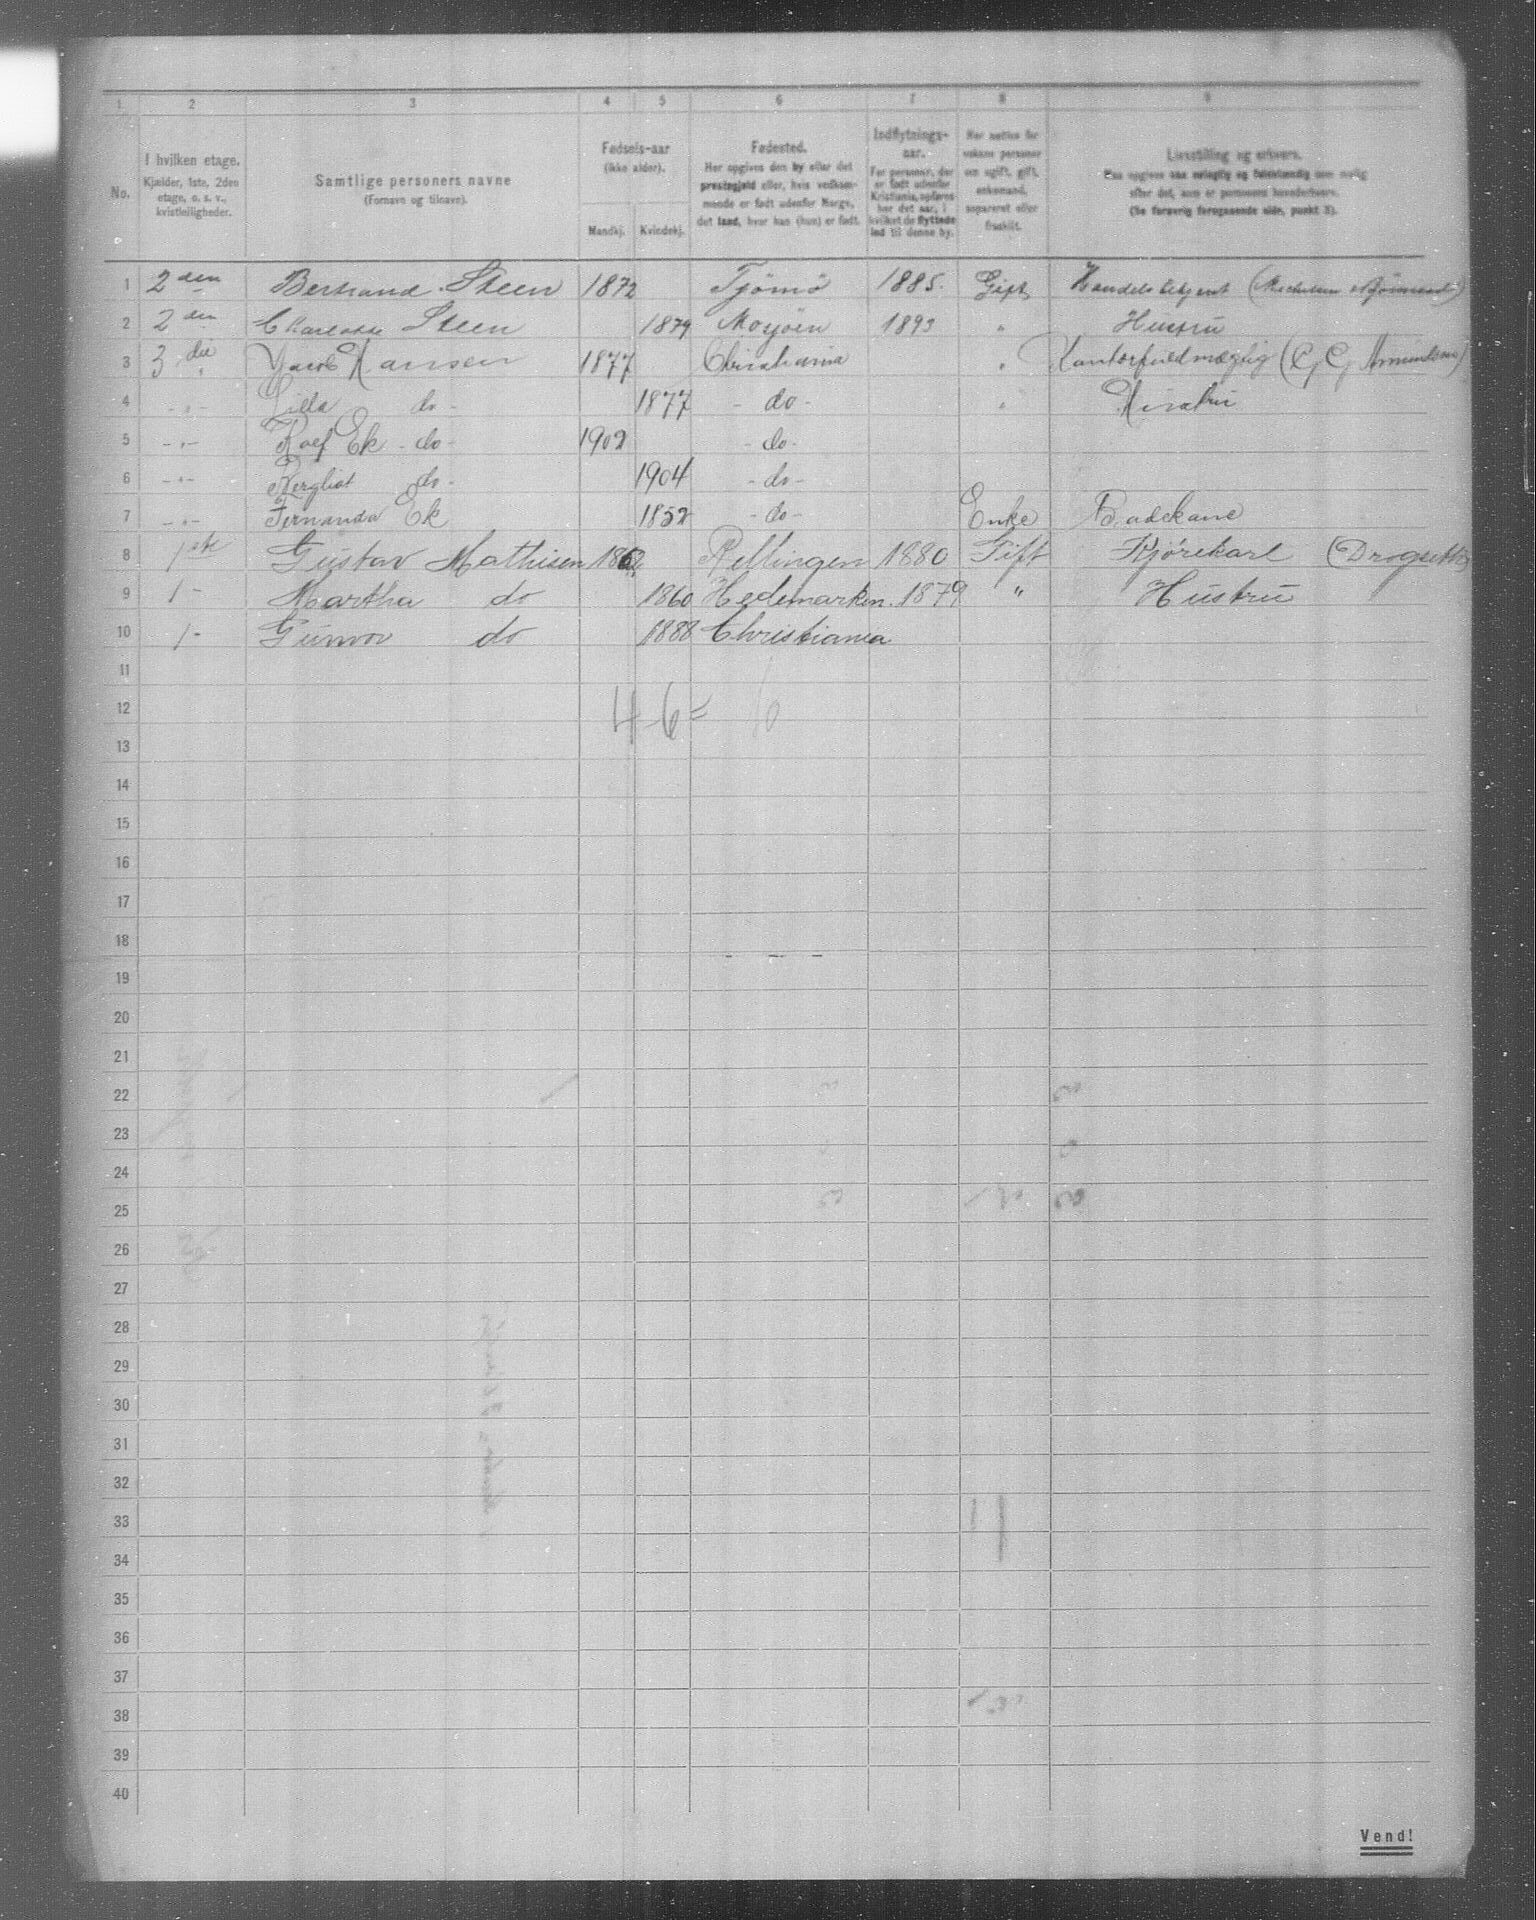 1 2 3 4 5 6 7 8 9
No. I hvilken etage. Kjælder, 1ste, 2den etage, o. s. v., kvistleiligheder.
Samtlige personers navne (Fornavn og tilnavn).
Fødsels-aar (ikke alder). Mandkj. Kvindekj.
Fødested. Her opgives den by eller det prestegjeld eller, hvis vedkommende er født udenfor Norge, det land, hvor han (hun) er født.
Indflytnings-aar. For personer, der er født udenfor Kristiania, opføres her det aar, i hvilket de flyttede ind til denne by.
Her anføres for voksne personer om ugift, gift, enkemand, separeret eller fraskilt.
Livsstilling og erhverv.
(Se forøvrig foregaaende side, punkt 3).
1 2den Bertrand Steen 1872 Tjömö 1885. Gift Handelsbetjent
2 2den Charlotte Steen 1879 Mosjöen 1893 " Hustru
3 3die Jacob Hansen 1877 Christiania " Kontorfuldmægtig
4 -"- do - 1877 - do - " Hustru
5 -"- Rolf Ek - do - 1902 - do -
6 -"- do - 1904 - do -
7 -"- Fernanda Ek 1852 - do - Enke Badekone
8 1ste Gustav Mathisen Röllingen 1880 Gift Kjørekarl
9 1 - Martha do 1860 Hedemarken. 1879 " Hustru
10 1 - Gunvor do 1888 Christiania
11
12 4 - 6 =
13
14
15
16
17
18
19
20
21
22
23
24
25
26
27
28
29
30
31
32
33
34
35
36
37
38
39
40
Vend!